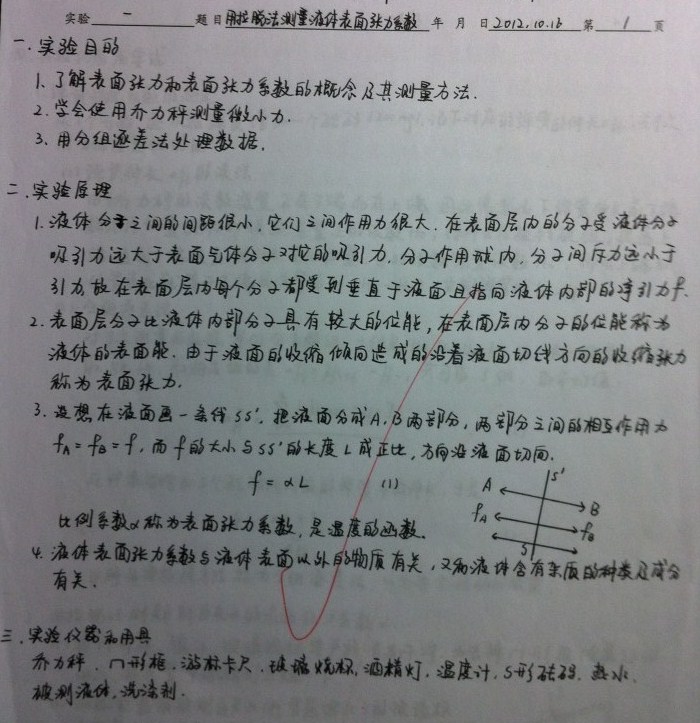 实验 一 题目 用拉脱法测量液体表面张力系数 年 月 日 2012.10.16 第 1 页
一.实验目的
1.了解表面张力和表面张力系数的概念及其测量方法.
2.学会使用乔力秤测量微小力.
3.用分组逐差法处理数据.
二.实验原理
1.液体分子之间的间距很小,它们之间作用力很大.在表面层内的分子受液体分子
吸引力远大于表面气体分子对它的吸引力.分子作用球内,分子间斥力远小于
引力,故在表面层内每个分子都受到垂直于液面且指向液体内部的牵引力f.
2.表面层分子比液体内部分子具有较大的位能,在表面层内分子的位能称为
液体的表面能.由于液面的收缩倾向造成的沿着液面切线方向的收缩张力
称为表面张力.
3.设想在液面画一条线SS',把液面分成A,B两部分,两部分之间的相互作用力
fA=fB=f,而f的大小与SS'的长度L成正比,方向沿液面切向.
f=αL (1)
A S' B
fA fB
S
比例系数α称为表面张力系数,是温度的函数.
4.液体表面张力系数与液体表面以外的物质有关,又和液体含有杂质的种类及成分
有关.
三.实验仪器和用具
乔力秤.冂形框.游标卡尺.玻璃烧杯,酒精灯.温度计.S形砝码.热水.
被测液体,洗涤剂.